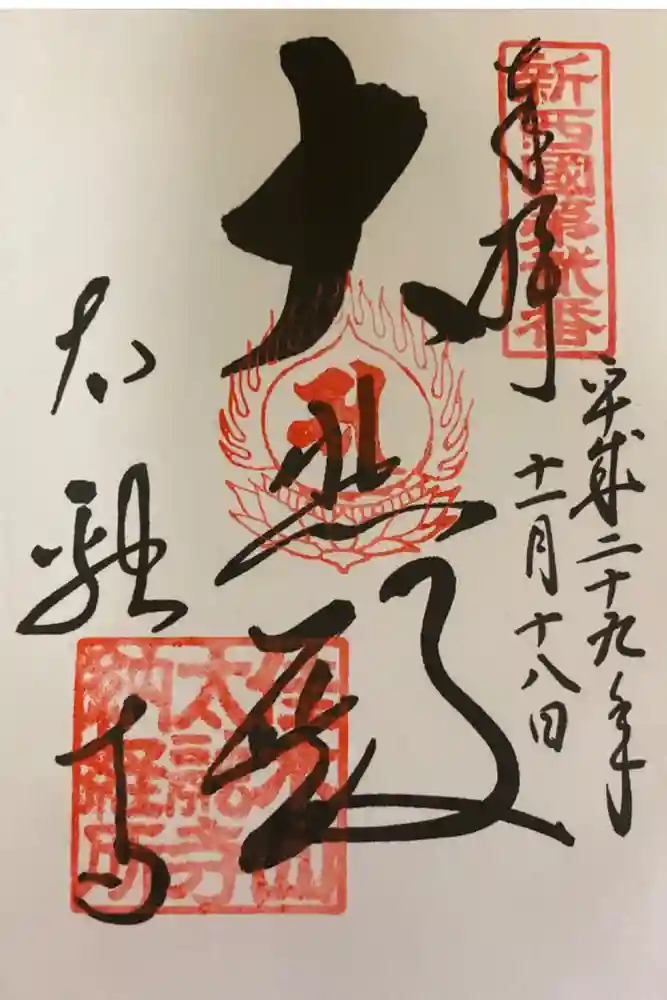 新西國第弍番
奉拝
平成二十九年
十一月十八日
大悲殿
太融寺
佳木山
太融寺
納經所